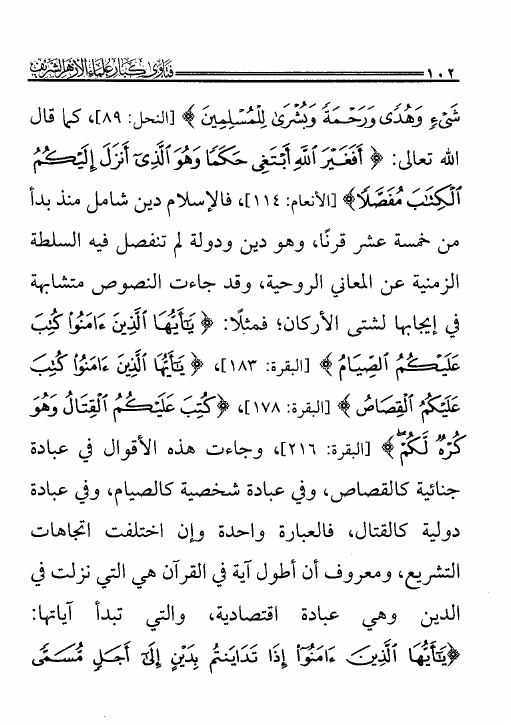 ١٠٢ فتاوى كبار علماء الأزهر الشريف
شَيْءٍ وَهُدًى وَرَحْمَةً وَبُشْرَىٰ لِلْمُسْلِمِينَ ﴾ [النحل: ٨٩]، كما قال
الله تعالى: ﴿ أَفَغَيْرَ ٱللَّهِ أَبْتَغِي حَكَمًا وَهُوَ ٱلَّذِىٓ أَنزَلَ إِلَيْكُمُ
ٱلْكِتَٰبَ مُفَصَّلًا﴾ [الأنعام: ١١٤]، فالإسلام دين شامل منذ بدأ
من خمسة عشر قرنًا، وهو دين ودولة لم تنفصل فيه السلطة
الزمنية عن المعاني الروحية، وقد جاءت النصوص متشابهة
في إيجابها لشتى الأركان؛ فمثلًا: ﴿ يَٰٓأَيُّهَا ٱلَّذِينَ ءَامَنُوا۟ كُتِبَ
عَلَيْكُمُ ٱلصِّيَامُ ﴾ [البقرة: ١٨٣]، ﴿ يَٰٓأَيُّهَا ٱلَّذِينَ ءَامَنُوا۟ كُتِبَ
عَلَيْكُمُ ٱلْقِصَاصُ ﴾ [البقرة: ١٧٨]، ﴿كُتِبَ عَلَيْكُمُ ٱلْقِتَالُ وَهُوَ
كُرْهٌ لَّكُمْ ۖ ﴾ [البقرة: ٢١٦]، وجاءت هذه الأقوال في عبادة
جنائية كالقصاص، وفي عبادة شخصية كالصيام، وفي عبادة
دولية كالقتال، فالعبارة واحدة وإن اختلفت اتجاهات
التشريع، ومعروف أن أطول آية في القرآن هي التي نزلت في
الدين وهي عبادة اقتصادية، والتي تبدأ آياتها:
﴿يَٰٓأَيُّهَا ٱلَّذِينَ ءَامَنُوٓا۟ إِذَا تَدَايَنتُم بِدَيْنٍ إِلَىٰٓ أَجَلٍ مُّسَمًّى